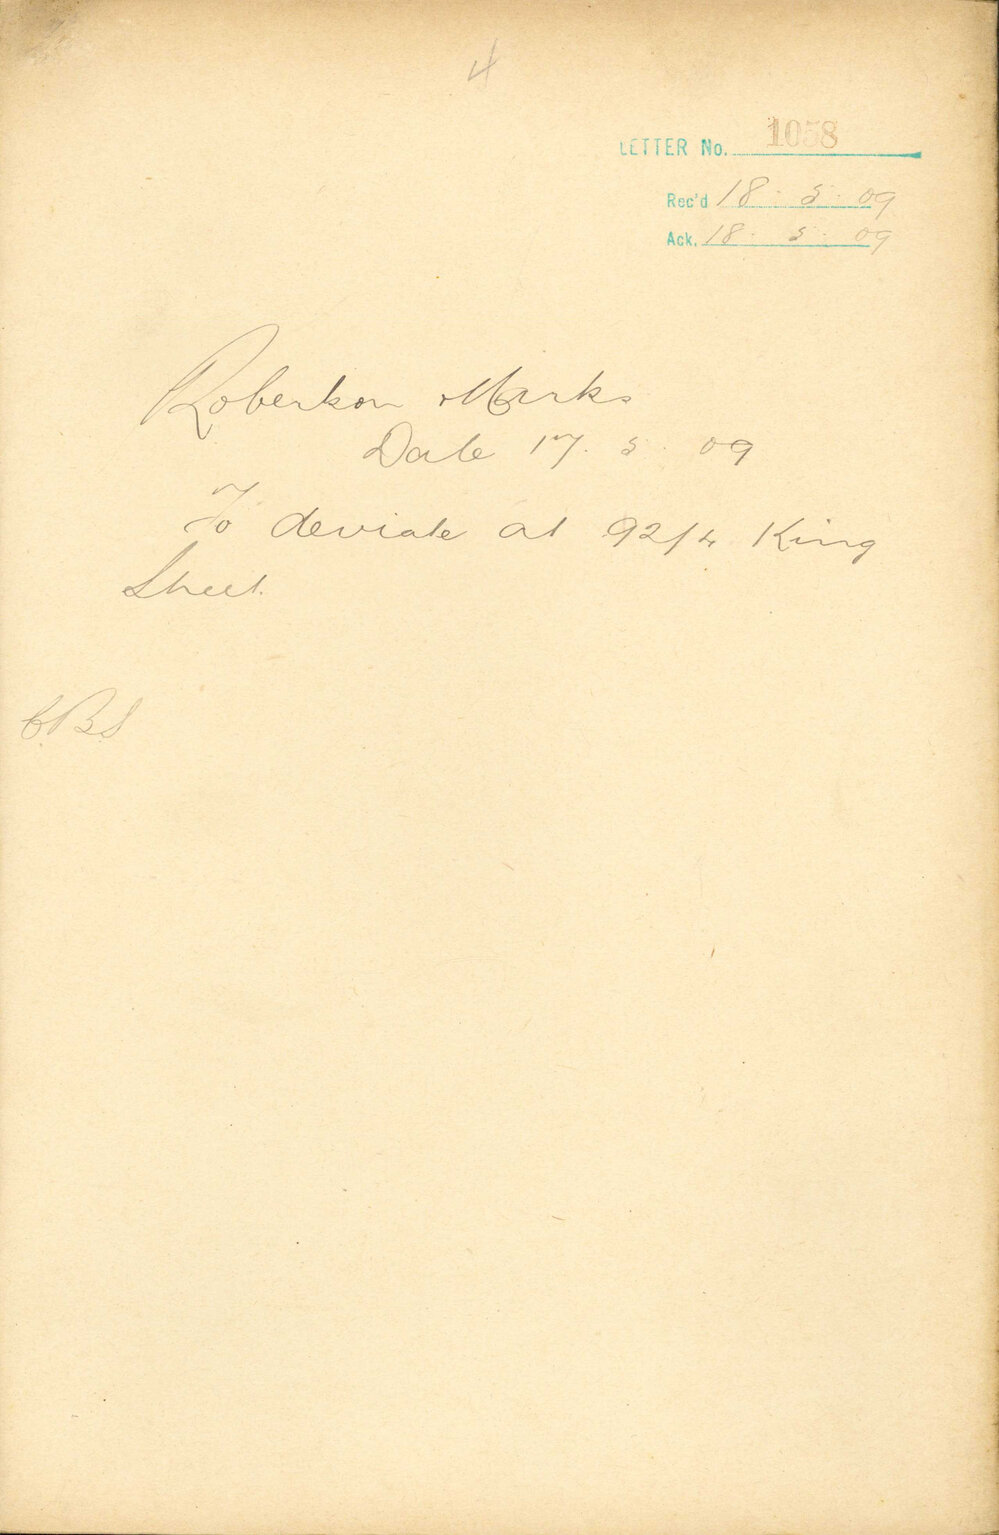 4
LETTER No. 1058
Rec'd 18. 5. 09
Ack. 18. 5. 09
Robertson Marks
Date 17. 5. 09
To deviate at 92/4 King
Street.
CBS